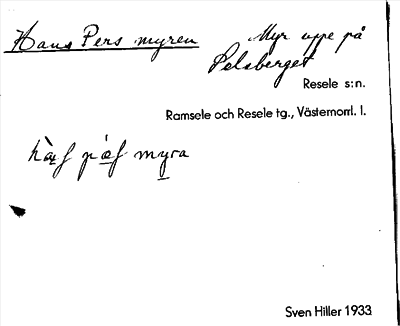 Hans Pers myren
Myr uppe på
Pelsberget
Resele s:n.
Ramsele och Resele tg., Västernorrl. l.
myra
Sven Hiller 1933